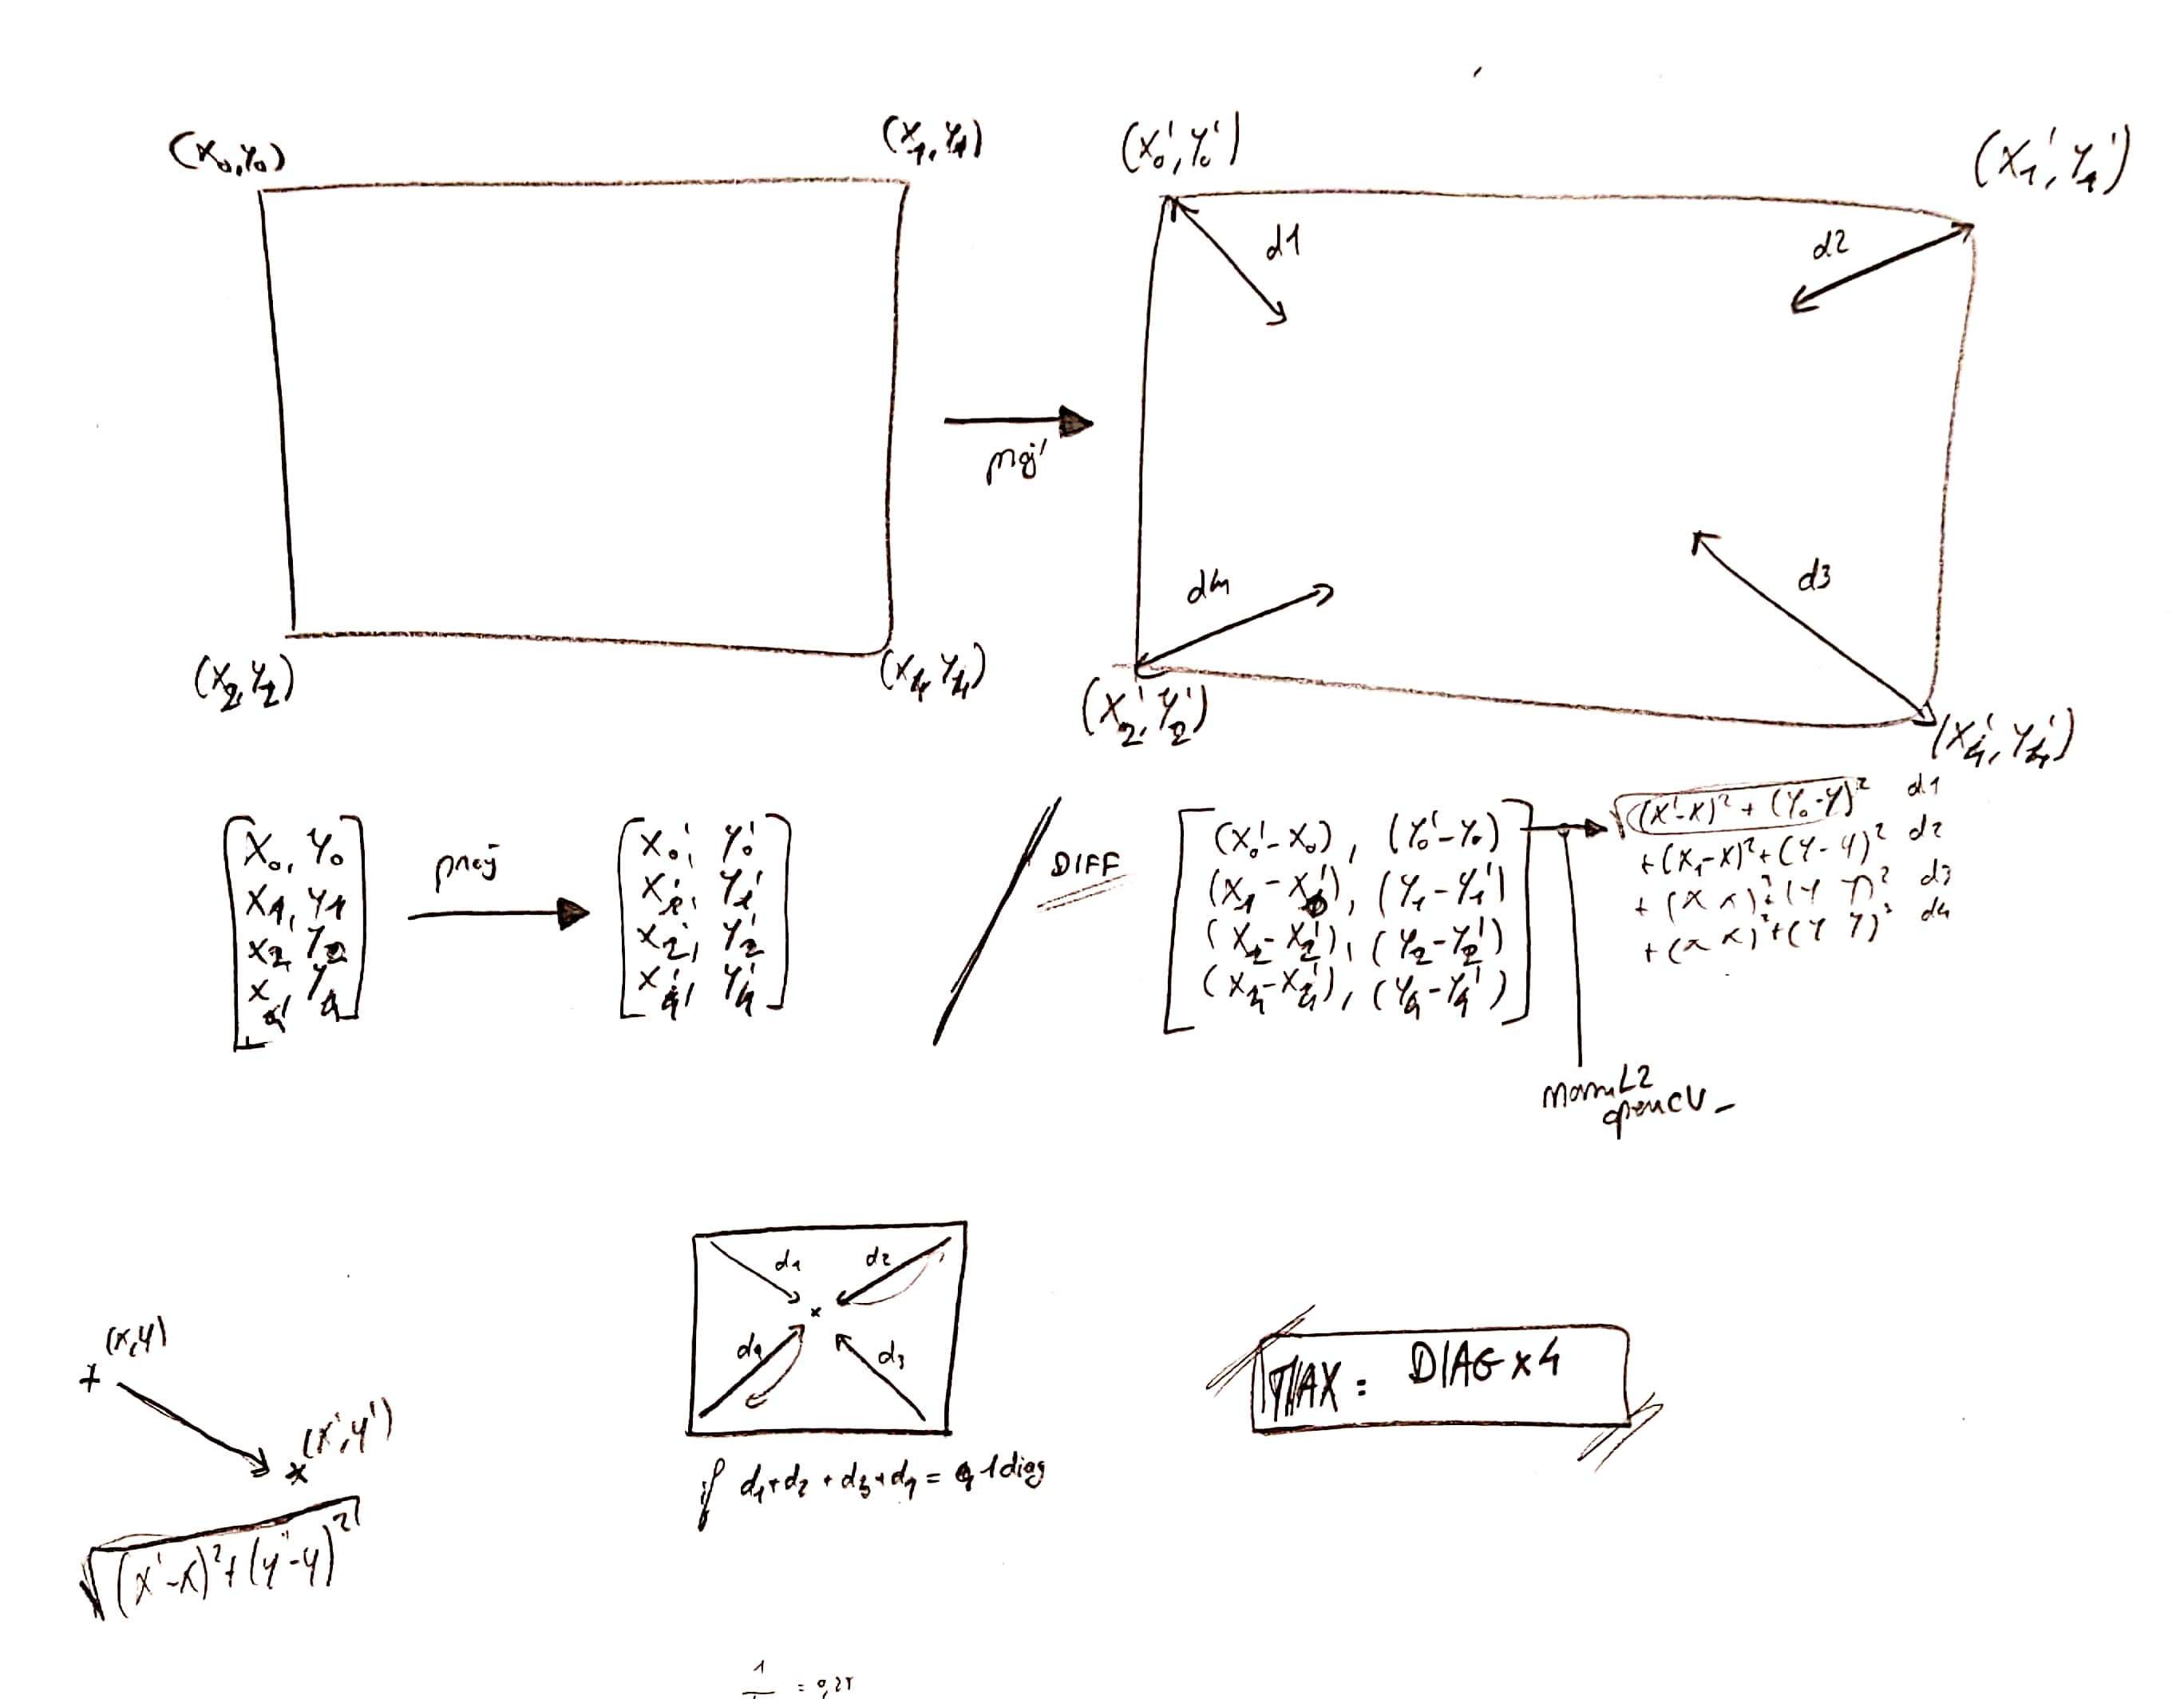 (x₀, y₀)
(x₁, y₁)
(x₀', y₀')
(x₁', y₁')
d1
d2
proj
d4
d3
(x₂, y₂)
(x₄, y₄)
(x₂', y₂')
(x₄', y₄')
x₀, y₀
x₁, y₁
x₂, y₂
x₄, y₄
proj
x₀', y₀'
x₁', y₁'
x₂', y₂'
x₄', y₄'
DIFF
(x₀' - x₀), (y₀' - y₀)
(x₁ - x₁'), (y₁ - y₁')
(x₂ - x₂'), (y₂ - y₂')
(x₄ - x₄'), (y₄ - y₄')
√(x' - x)² + (y₀ - y)² d1
+ (x₁ - x)² + (y - y)² d2
+ (x x)² + (y y)² d3
+ (x x)² + (y y)² d4
norm L2
openCV
d1
d2
d4
d3
(x, y)
(x', y')
√(x' - x)² + (y' - y)²
if d1 + d2 + d3 + d4 = 1 diag
MAX = DIAG x 4
1
= 0,25